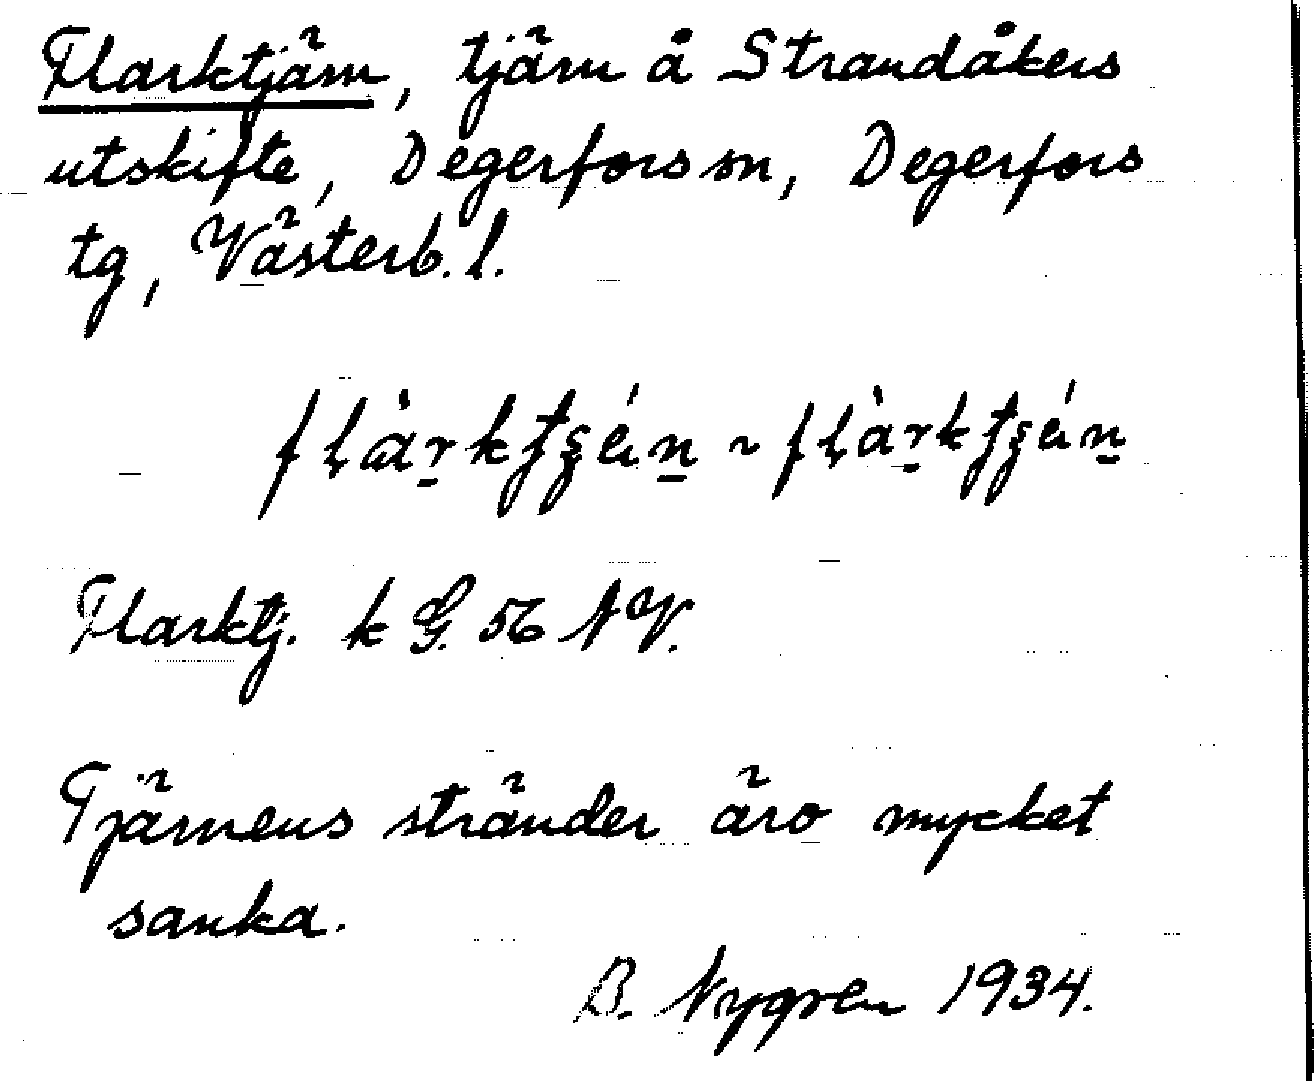 Flarktjärn, tjärn å Strandåkers
utskifte, Degerfors sn, Degerfors
tg, Västerb. l.
Flarktj. k G. 56 NV.
Tjärnens stränder äro mycket
sanka.
B. Nygren 1934.